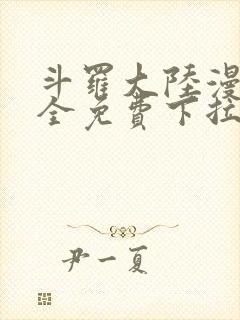 斗羅大陸漫
全免費下拉
尹一夏